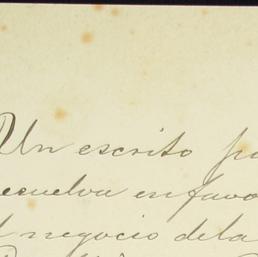 Un escrito pa
esuelva en favo
l negocio de la